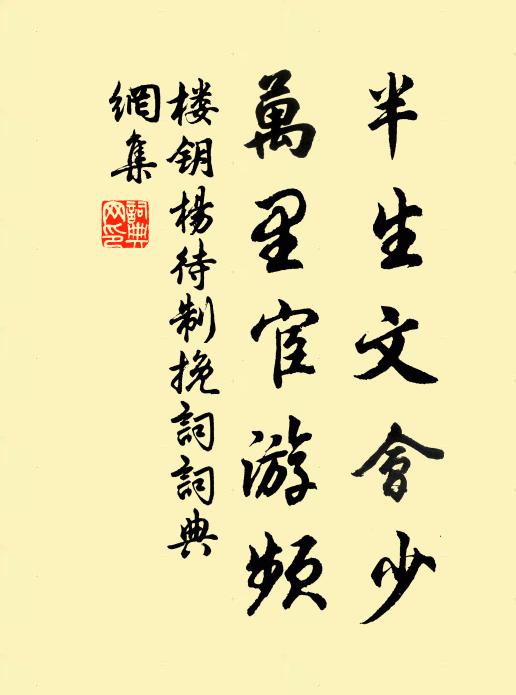 半生文會少
萬里宦游頻
楼钥楊待制挽詞詞典
網集
詞典
网印